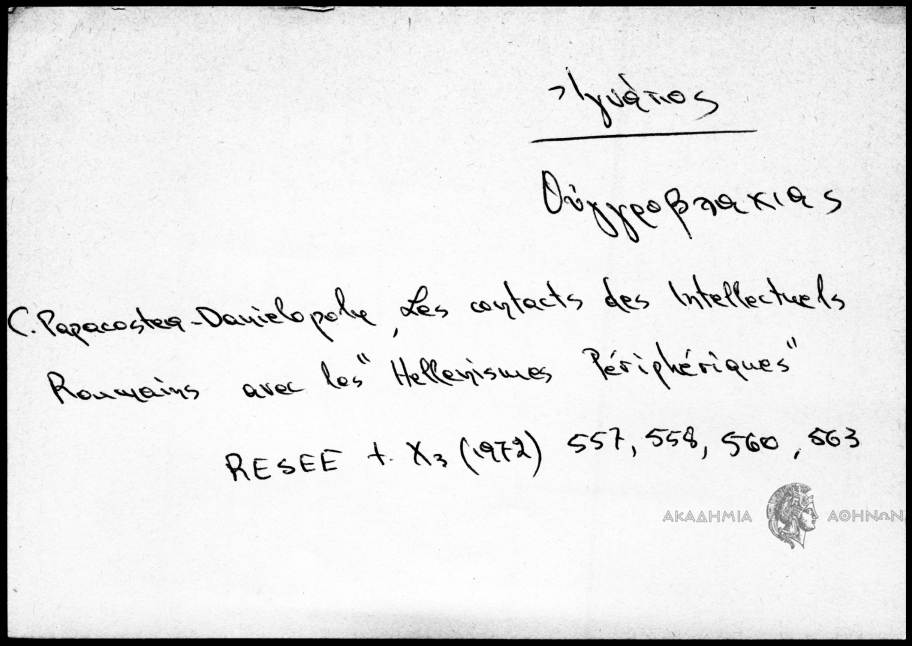 Ἰγνάτιος
Οὐγγροβλαχίας
C. Papacostea-Danielopolu, Les contacts des Intellectuels
Roumains avec les "Hellenismes Périphériques"
RESEE t. X3 (1972) 557, 558, 560, 563
ΑΚΑΔΗΜΙΑ ΑΘΗΝΩΝ